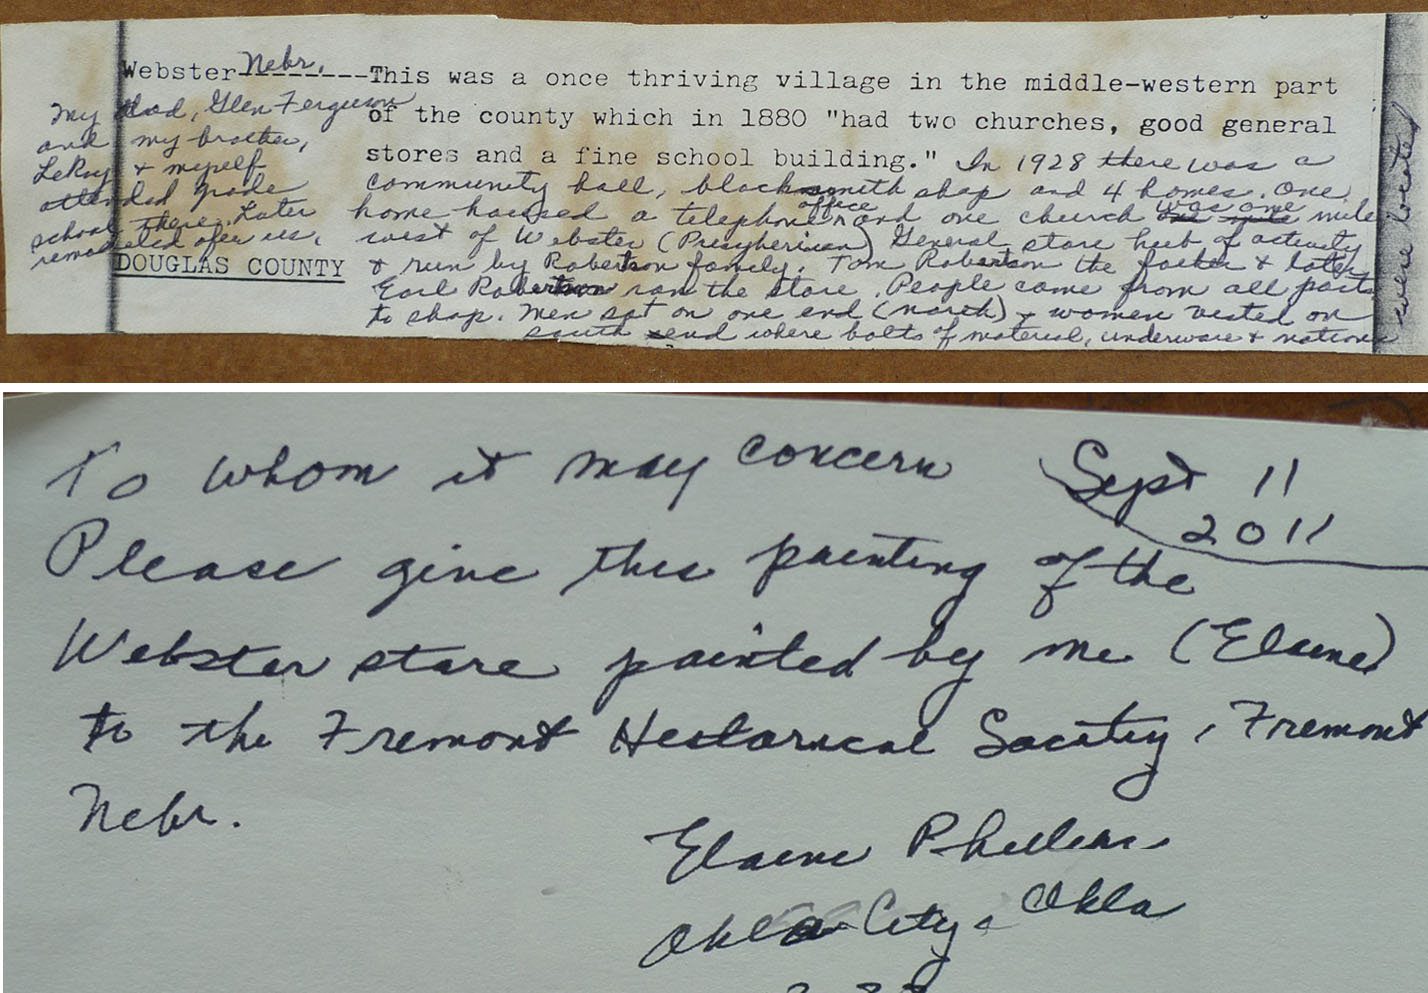 Webster Nebr. --------This was a once thriving village in the middle-western part
of the county which in 1880 "had two churches, good general
stores and a fine school building." In 1928 there was a
community hall, blacksmith shop and 4 homes. One
home housed a telephone office and one church was one mile
west of Webster (Presyberian) General store hub of activity
& run by Robertson family. Tom Robertson the father & later
Earl Robertson ran the store. People came from all parts
to shop. Men sat on one end (north) & women visted on
south end where bolts of material, underware & notions
were located
My dad, Glen Ferguson
and my brother,
LeRoy & myself
attended grade
school there. Later
remodeled after us.
DOUGLAS COUNTY
To whom it may concern
Sept 11
2011
Please give this painting of the
Webster store painted by me (Elaine)
to the Fremont Historical Society, Fremont
Nebr.
Elaine Phillips
Okla City, Okla